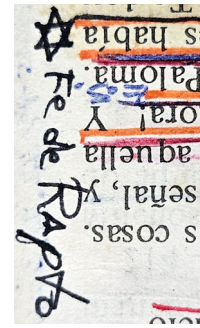 Fe de Rapto
s cosas.
señal, y
aquella
ora! Y
Paloma.
s había